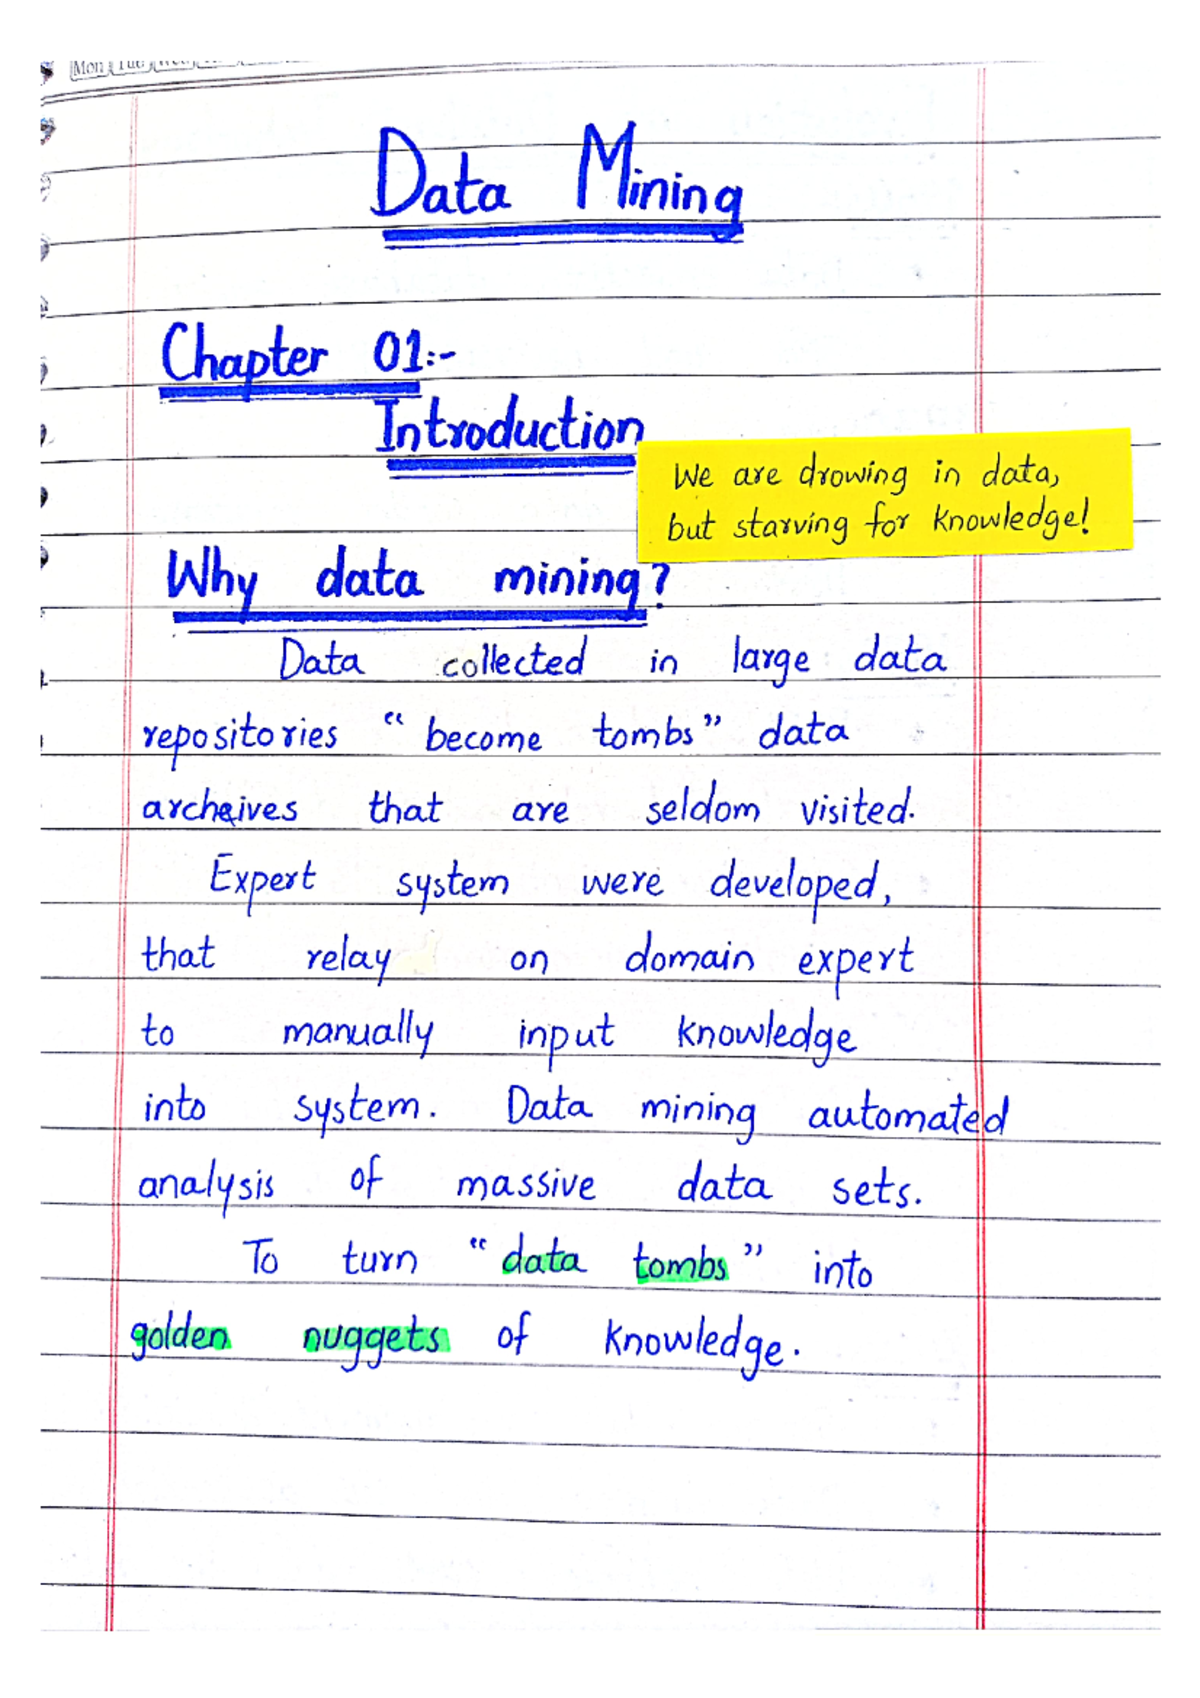 Mon Tue Wed
Data Mining
Chapter 01:-
Introduction
We are drowing in data,
but starving for knowledge!
Why data mining?
Data collected in large data
repositories “become tombs” data
archeives that are seldom visited.
Expert system were developed,
that relay on domain expert
to manually input knowledge
into system. Data mining automated
analysis of massive data sets.
To turn “data tombs” into
golden nuggets of knowledge.